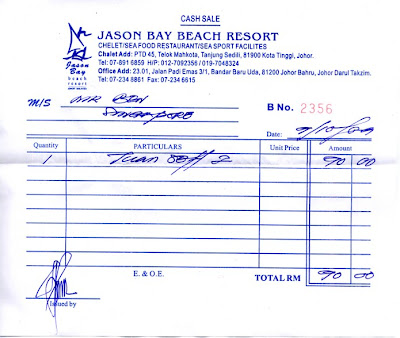 CASH SALE
JASON BAY BEACH RESORT
CHELET/SEA FOOD RESTAURANT/SEA SPORT FACILITES
Chalet Add: PTD 45, Telok Mahkota, Tanjung Sedili, 81900 Kota Tinggi, Johor.
Tel: 07-891 6859 H/P: 012-7092356 / 019-7048324
Office Add: 23.01, Jalan Padi Emas 3/1, Bandar Baru Uda, 81200 Johor Bahru, Johor Darul Takzim.
Tel: 07-234 8861 Fax: 07-234 6615
Jason
Bay
beach
resort
M/S MR
SINGAPORE
B No. 2356
Date:
Quantity PARTICULARS Unit Price Amount
1 2 90 00
E. & O.E. TOTAL RM 90 00
Issued by